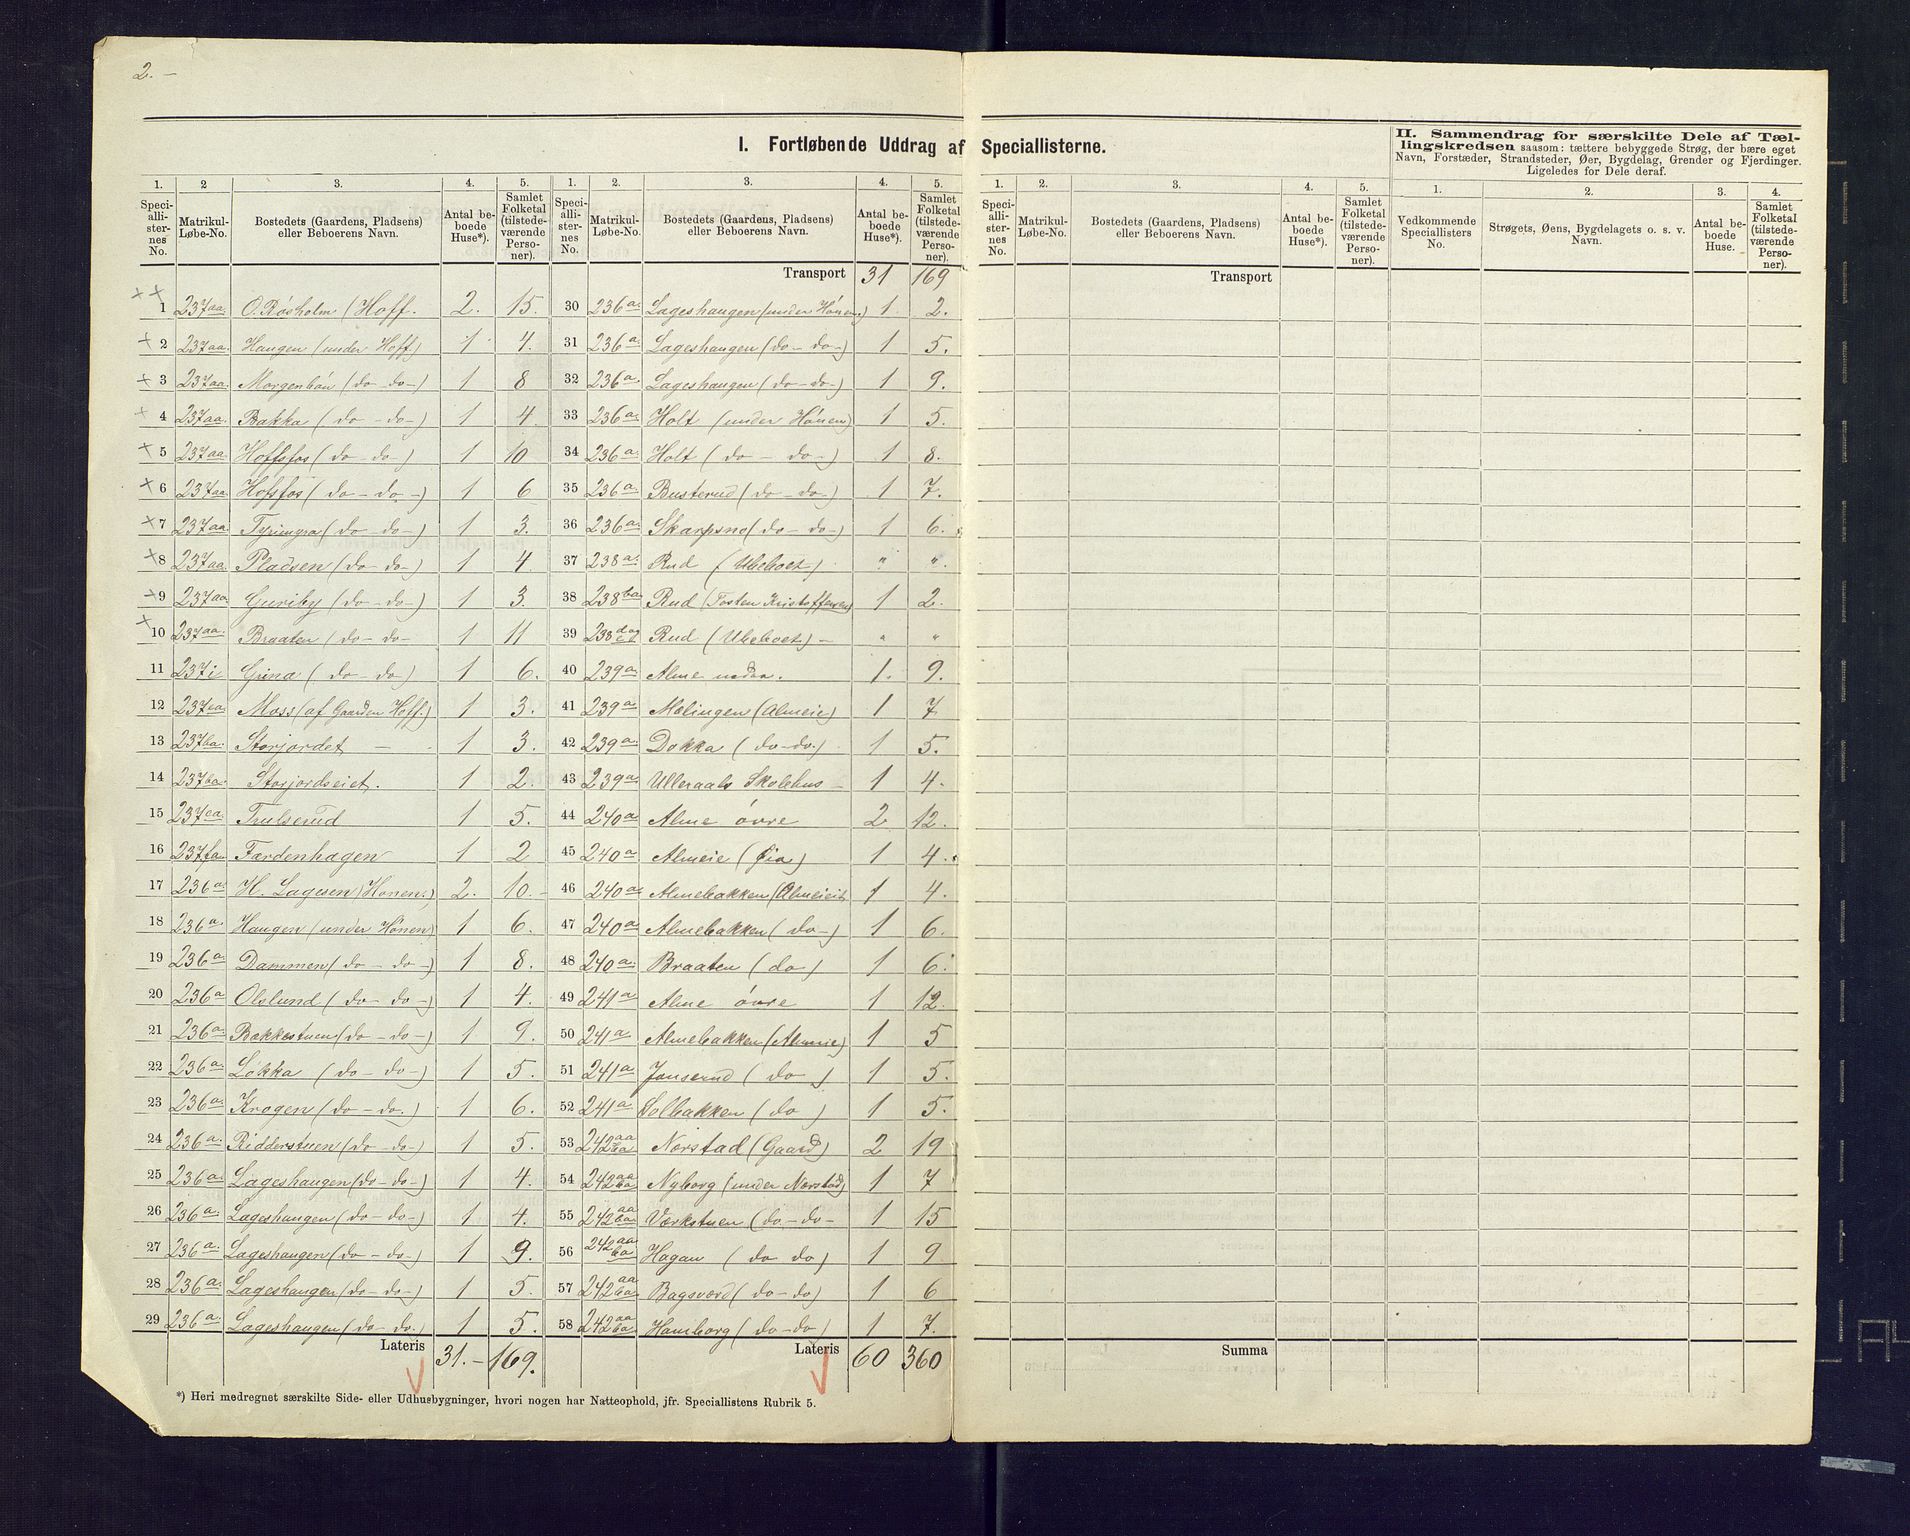 2. –
I. Fortløbende Uddrag af Speciallisterne.
II. Sammendrag for særskilte Dele af Tæl-
lingskredsen saasom: tættere bebyggede Strøg, der bære eget
Navn, Forstæder, Strandsteder, Øer, Bygdelag, Grender og Fjerdinger.
Ligeledes for Dele deraf.
1. 2 3. 4. 5. 1. 2. 3. 4. 5. 1. 2. 3. 4. 5. 1. 2. 3. 4.
Speciallisternes No. Matrikul-Løbe-No. Bostedets (Gaardens, Pladsens) eller Beboerens Navn. Antal beboede Huse*). Samlet Folketal (tilstedeværende Personer).
Speciallisternes No. Matrikul-Løbe-No. Bostedets (Gaardens, Pladsens) eller Beboerens Navn. Antal beboede Huse*). Samlet Folketal (tilstedeværende Personer).
Speciallisternes No. Matrikul-Løbe-No. Bostedets (Gaardens, Pladsens) eller Beboerens Navn. Antal beboede Huse*). Samlet Folketal (tilstedeværende Personer).
Vedkommende Speciallisters No. Strøgets, Øens, Bygdelagets o. s. v. Navn. Antal beboede Huse. Samlet Folketal (tilstedeværende Personer).
1 237aa. O. Røsholm (Hoff. 2. 15.
2 237aa. Haugen (under Hoff) 1 4.
3 237aa. Morgenbön (do-do-) 1 8
4 237aa. Bakka (do-do-) 1 4
5 237aa Hoffsfos (do-do-) 1 10
6 237aa Hofsfos (do-do-) 1 6
7 237aa. (do-do-) 1 3.
8 237aa. Pladsen (do-do-) 1 4
9 237aa Guriby (do-do-) 1 3.
10 237aa. Braaten (do-do- 1 11
11 237i Grina (do-do) 1 6.
12 237 Moss (af Gaarden Hoff.) 1 3.
13 237ba. Storjordet – 1 3.
14 237ba. Storjordseiet. 1 2.
15 237ea. Trulserud 1 5.
16 237fa Færdenhagen 1 2
17 236a. H. Lagesen (Hönen.) 2. 10.
18 236a. Haugen (under Hönen) 1 6.
19 236a Dammen (do-do-) 1 8.
20 236a Olslund (do-do-) 1 4.
21 236a. Bakkestuen (do-do-) 1 9.
22 236a. Lökka (do-do-) 1 5.
23 236a. Krogen (do-do.) 1 6.
24 236a. Ridderstuen (do-do-) 1 5.
25 236a. Lageshaugen (do-do-) 1 4.
26 236a. Lageshaugen (do-do-) 1 4.
27 236a. Lageshaugen (do-do-) 1 9.
28 236a. Lageshaugen (do-do-) 1 5.
29 236a. Lageshaugen (do-do.) 1 5.
Lateris 31.– 169.
Transport 31 169
30 236a. Lageshaugen (under Hönen.) 1 2.
31 236a Lageshaugen (do-do-) 1 5.
32 236a. Lageshaugen (do-do-) 1 9.
33 236a. Holt (under Hönen) 1 5.
34 236a. Holt (do-do-) 1 8.
35 236a. Busterud (do-do-) 1 7.
36 236a. Skarpsno (do-do-) 1 6.
37 238a. Rud (Ubeboet) " "
38 238ba. Rud (Tosten Kristoffersen) 1 2.
39 238 Rud (Ubeboet) – " "
40 239a. Alme nedre. 1. 9.
41 239a. Mælingen (Almeie) 1 7
42 239a. Dokka (do-do.) 1 5.
43 239a. Ulleraals Skolehus – 1 4.
44 240a Alme övre 2 12.
45 240a Almeie (Øia) 1 4.
46 240a. Almebakken (Almeiet) 1 4.
47 240a. Almebakken (do-) 1 6.
48 240a. Braaten (do) 1 6.
49 241a Alme övre 1 12.
50 241a. Almebakken (Almeie) 1 5
51 241a Jonserud (do) 1 5.
52 241a Solbakken (do) 1 5.
53 242aa ba Norstad (Gaard) 2 19
54 242aa ba. Nyborg (under Norstad) 1 7
55 242aa ba Værkstuen (do-do- 1 15
56 242aa ba Hagan (do do) 1 9
57 242aa ba. Bagsværd (do-do) 1 6
58 242aa ba. Hamborg (do-do) 1 7.
Lateris 60 360
Transport
Summa
*) Heri medregnet særskilte Side- eller Udhusbygninger, hvori nogen har Natteophold, jfr. Speciallistens Rubrik 5.